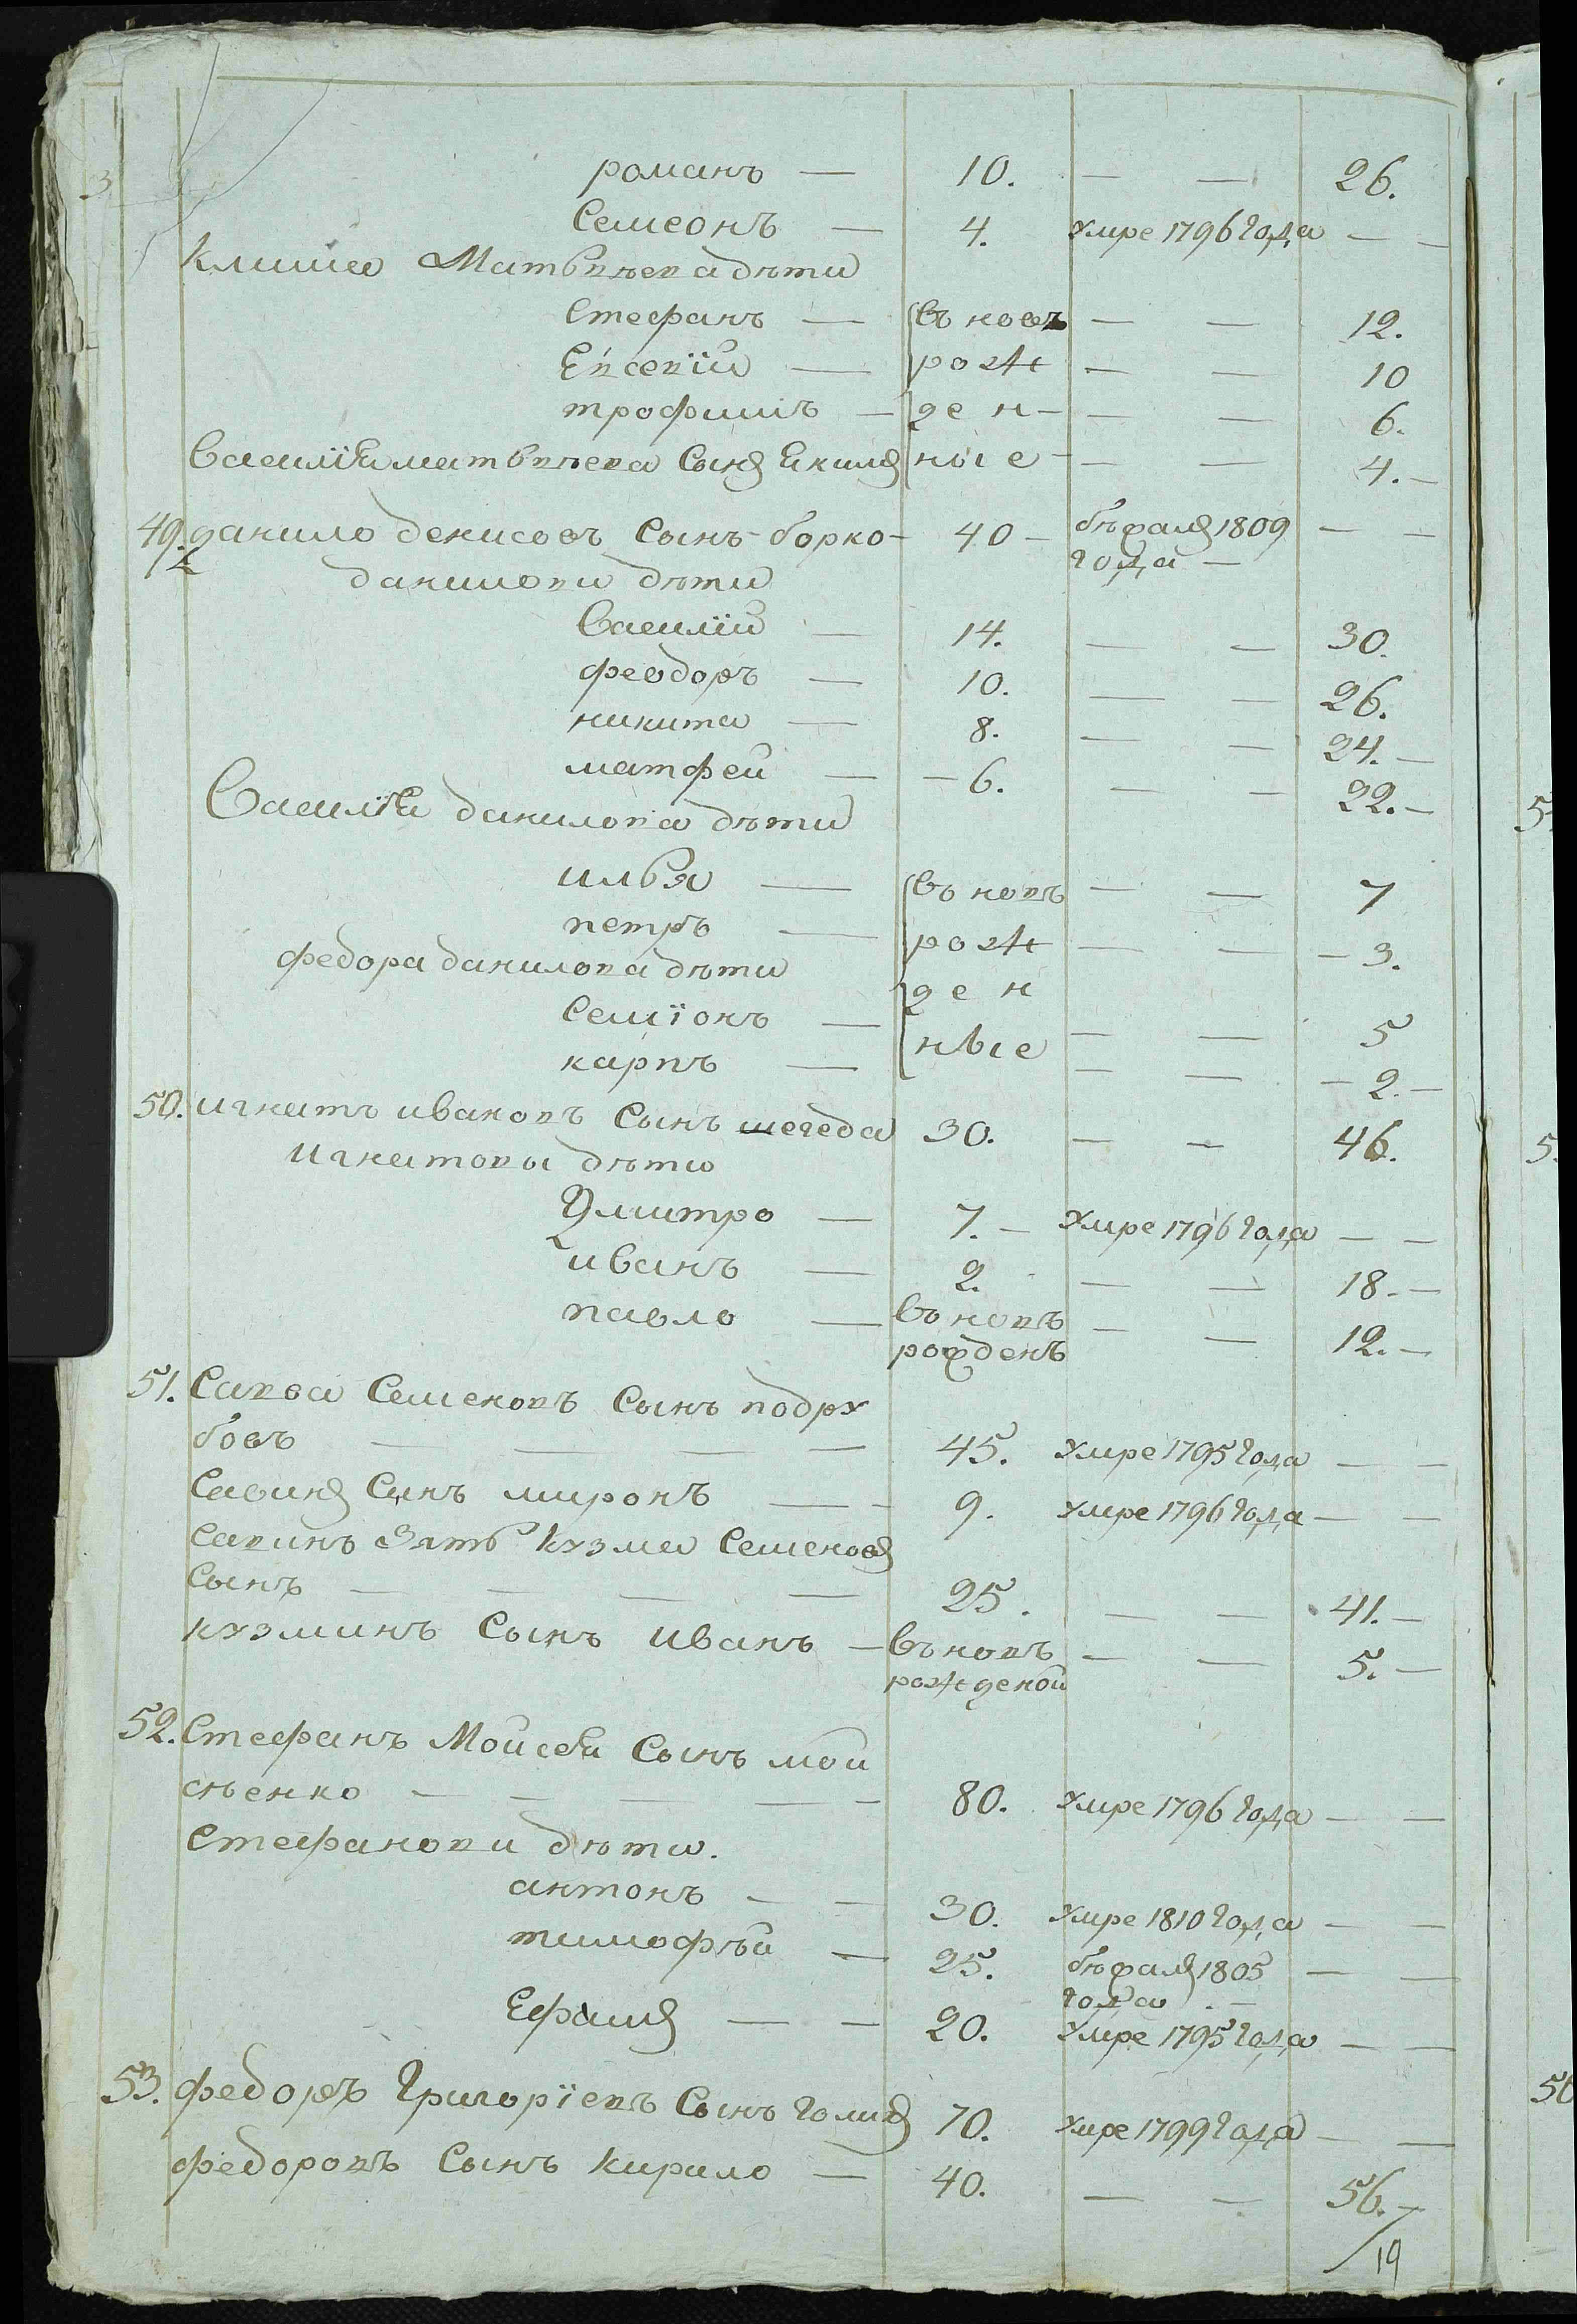 романъ — 10. — — 26.
Семеонъ — 4. умре 1796 года — —
Клима Матвѣева дѣти
Стефанъ — въ новъ — — 12.
Евсевїй — рож — — 10
трофимъ — ден — — 6.
Василїя матвѣева Сынъ Екимъ ные — — 4. —
49. данило денисовъ Сынъ борко — 40 — бѣжалъ 1809 — —
данилови дѣти года —
Василїй — 14. — — 30.
феодоръ — 10. — — 26.
никита — 8. — — 24. —
матфей — 6. — — 22. —
Василїя данилова дѣти
илья — въ новъ — — 7
петръ — рож — — 3.
федора данилова дѣти ден
Семїонъ — ные — — 5
карпъ — — — 2. —
50. игнатъ ивановъ Сынъ шегеда 30. — — 46.
игнатовы дѣти
Дмитро — 7. — умре 1796 года — —
иванъ — 2. — — 18. —
павло — въ новъ — — 12. —
рожденъ
51. Савва Семеновъ Сынъ подру
бовъ — — — — 45. умре 1795 года — —
Савинъ Сынъ миронъ — — 9. умре 1796 года — —
Савинъ Зять Кузма Семеновъ
Сынъ — — — — 25. — — 41. —
кузминъ Сынъ иванъ — въ новъ — — 5. —
рожденой
52. Стефанъ Мойсея Сынъ мой
сѣенко — — — — — 80. умре 1796 года — —
Стефанови дѣти.
антонъ — — 30. умре 1810 года — —
тимофѣй — 25. бѣжалъ 1805 — —
года . —
Ефимъ — — 20. умре 1795 года — —
53. федоръ Григорїевъ Сынъ голикъ 70. умре 1799 года — —
федоровъ Сынъ кирило — 40. — — 56. —
19